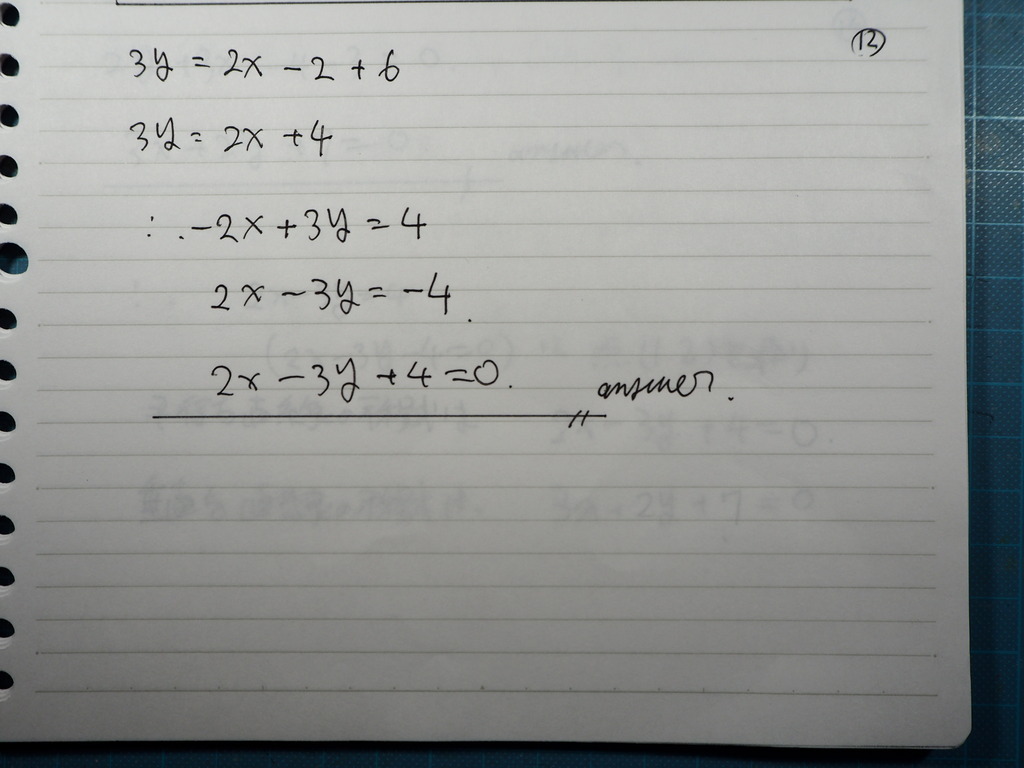 ⑬
3y = 2x - 2 + 6
3y = 2x + 4
∴ -2x + 3y = 4
2x - 3y = -4.
2x - 3y + 4 = 0. answer.
2x - 3y + 4 = 0.